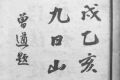 乙亥
九日山
曾遒題